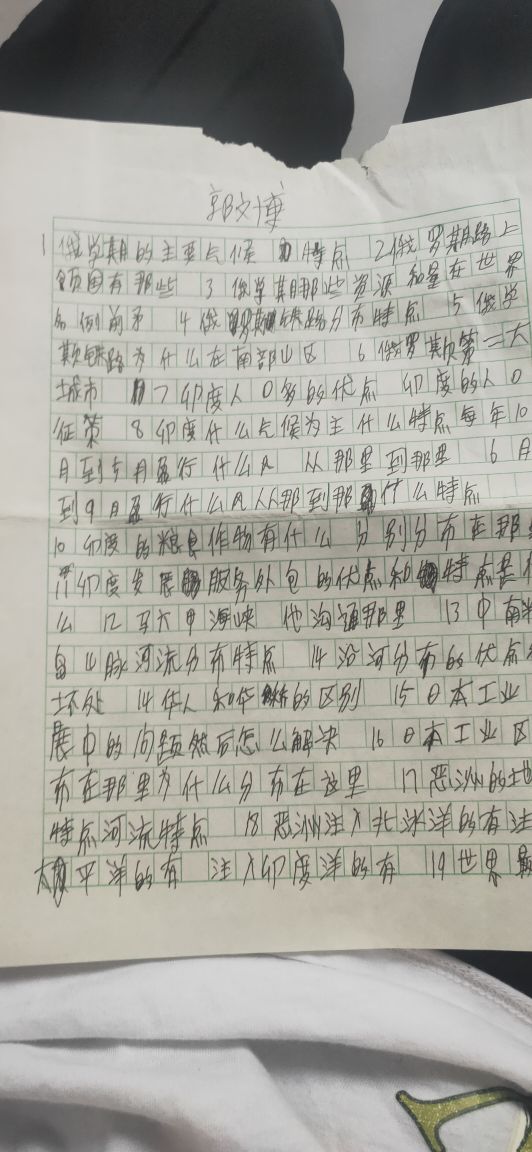 郭文博
1 俄罗斯的主要气候 特点 2俄罗斯陆上
领国有那些 3 俄罗斯那些资源和量在世界
名例前矛 4俄罗斯铁路分布特点 5俄罗
斯铁路为什么在南部山区 6俄罗斯第二大
城市 7印度人口多的优点 印度的人口
征策 8印度什么气候为主什么特点每年10
月到5月盈行什么风 从那里到那里 6月
到9月盈行什么风从那到那里什么特点
10 印度的粮食作物有什么 分别分布在那
11印度发展服务外包的优点和特点是
么 12 马六甲海峡 他沟通那里 13中南
岛山脉河流分布特点 14沿河分布的优点
坏处 14华人和华侨的区别 15日本工业
展中的问题然后怎么解决 16日本工业区
布在那里为什么分布在这里 17恶洲的地
特点河流特点 18恶洲注入北冰洋的有注
太平洋的有 注入印度洋的有 19世界最